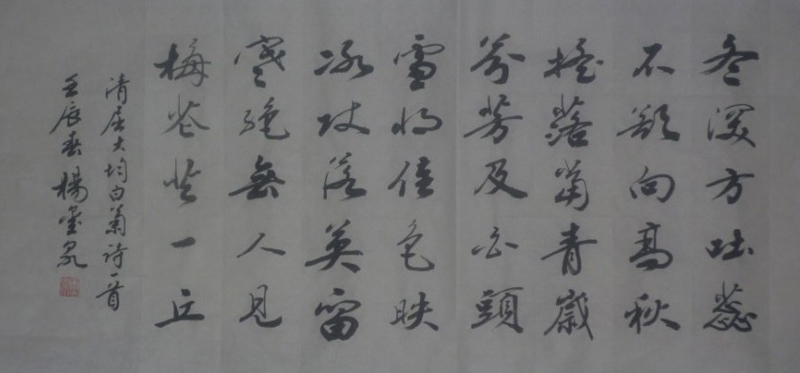 冬深方吐蕊
不欲向高秋
搖落當青歲
芬芳及白頭
雪將佳色映
冰落英留
寒絕無人見
梅花共一丘
清屈大均白菊詩一首
壬辰春楊泉